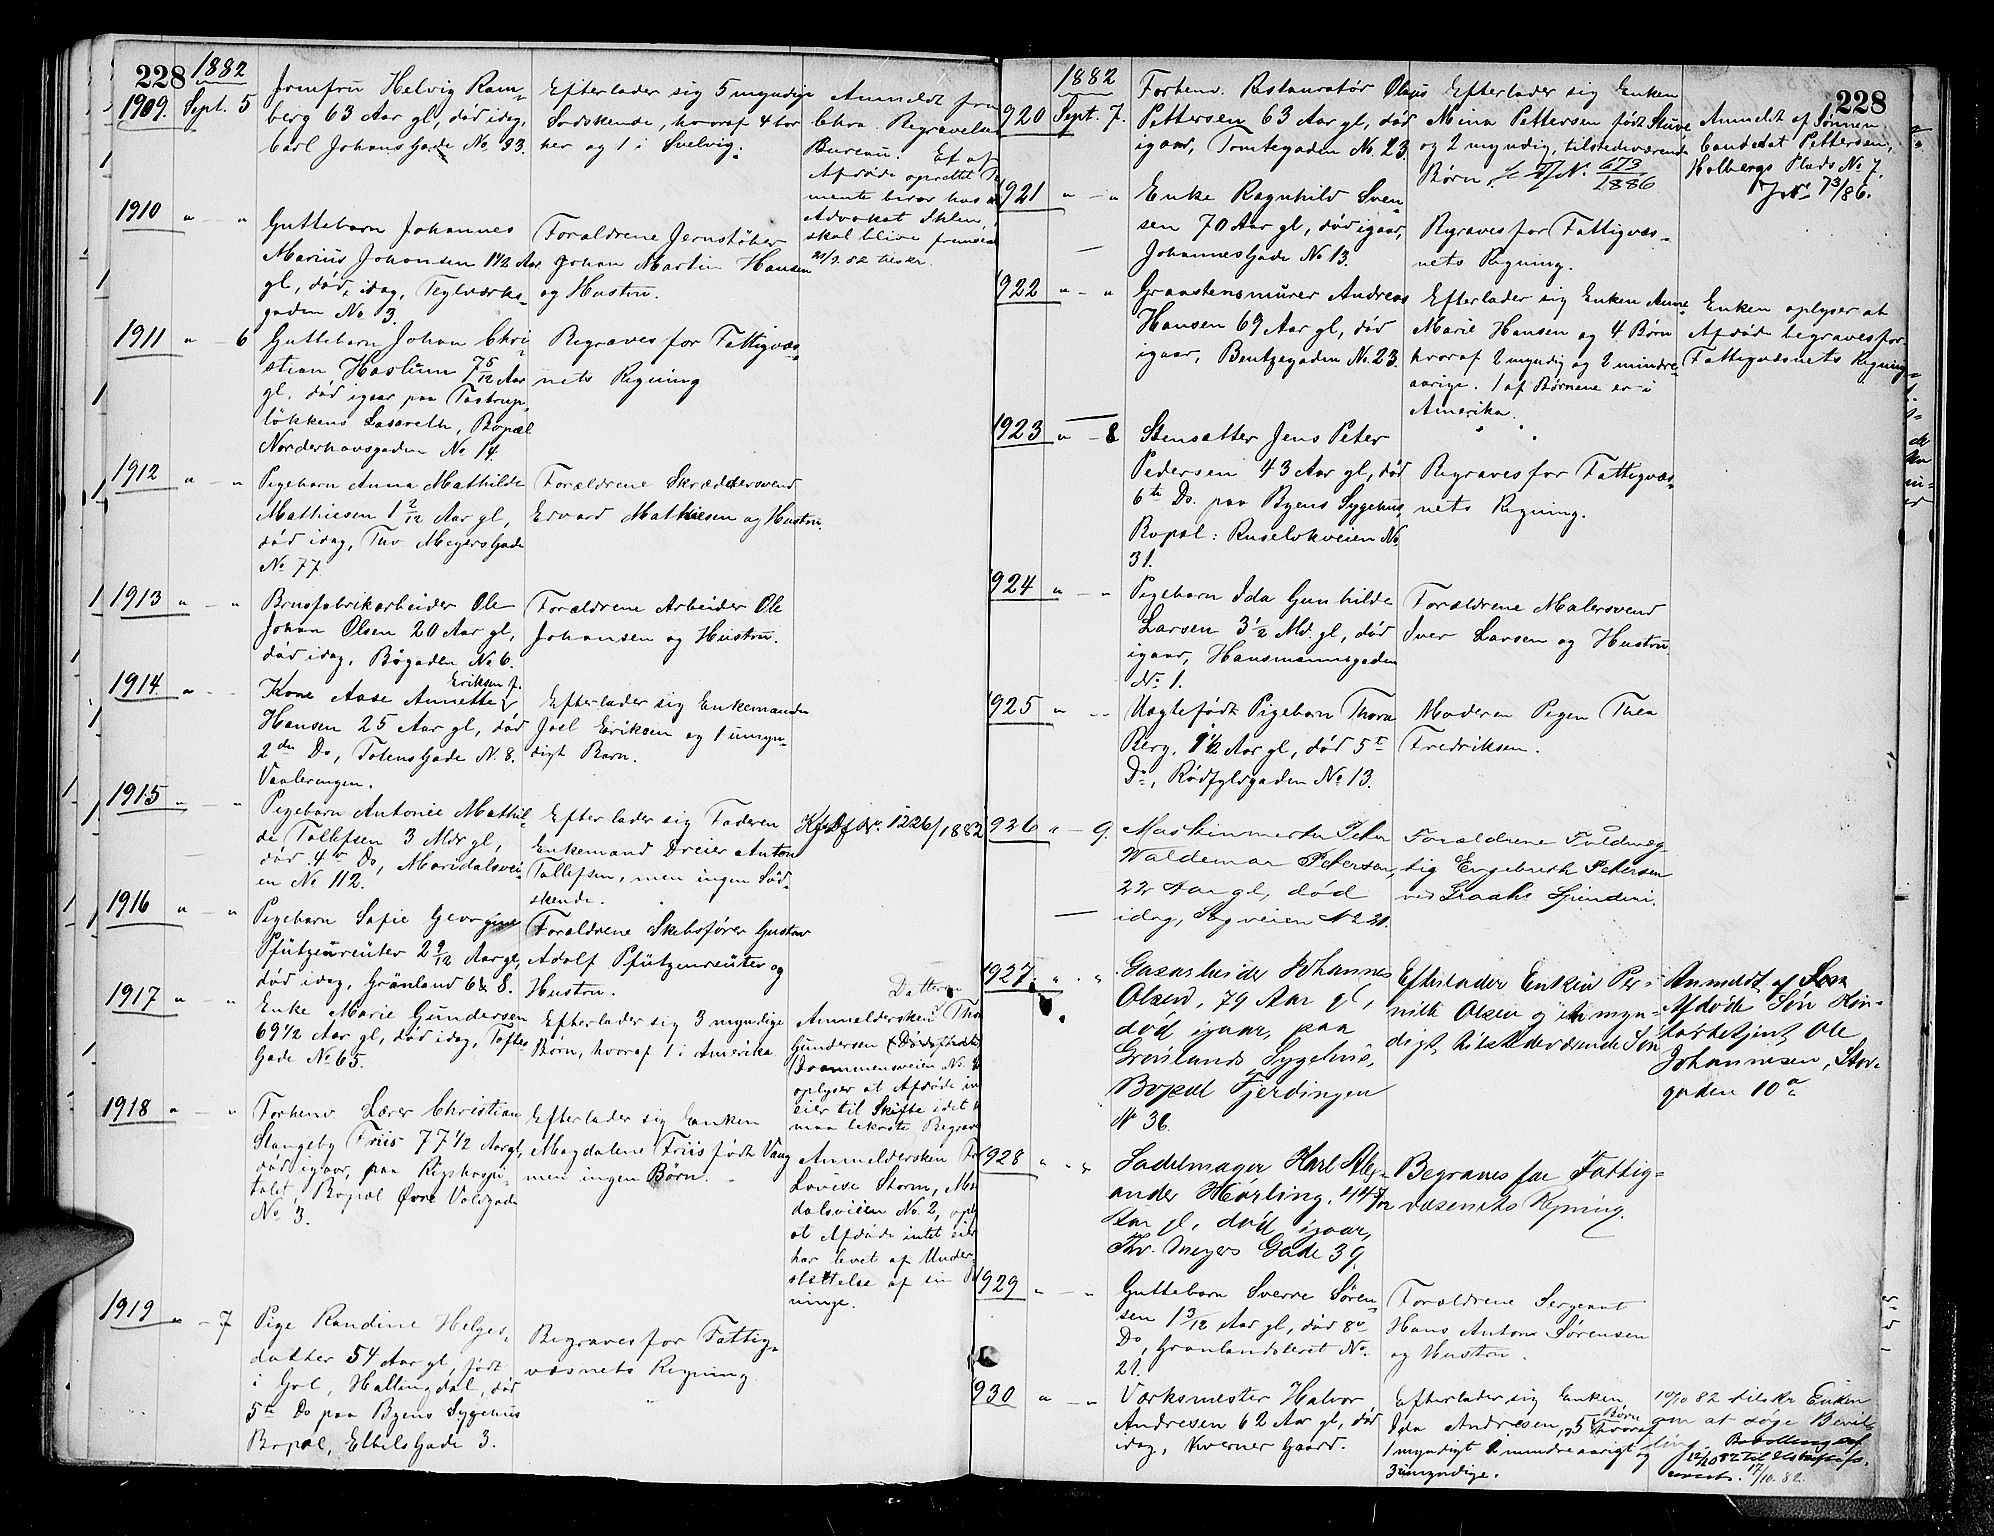 228
1882
1909. Sept. 5
Jomfru Helvig Ram-
berg 63 Aar gl, død idag,
Carl Johans Gade No 33.
Efterlader sig 5 myndige
Sødskende, hvoraf 4 her
og 1 i Svelvig.
Anmeldt fra
Chra. Begravelses
Bureau. Et af
Afdøde oprettet Te
mente beror hos
Advokat Ihlen,
skal blive fremse
21/9 82 tilskr.
1910 " - "
Guttebarn Johannes
Marius Johansen 1 1/2 Aar
gl, død idag, Teglværks-
gaden No 3.
Forældrene Jernstøber
Johan Martin Hansen
og Hustru.
1911 " - 6
Guttebarn Johan Chri-
stian Haslum 7 5/12 Aar
gl, død igaar paa Tastrup-
løkkens Lasareth, Bopæl
Norderhovsgaden No 14.
Begraves for Fattigvæs-
nets Regning
1912 " - "
Pigebarn Anna Mathilde
Mathiesen 1 2/12 Aar gl,
død idag, Thv Meyers Gade
No 77.
Forældrene Skræddersvend
Edvard Mathiesen og Hustru.
1913 " - "
Brusfabrikarbeider Ole
Johan Olsen 20 Aar gl,
død idag, Bøgaden No 6.
Forældrene Arbeider Ole
Johansen og Hustru.
1914 " -
Eriksen f.
Kone Aase Annette
Hansen 25 Aar gl, død
2den Ds, Totens Gade N. 8.
Vaalerengen.
Efterlader sig Enkemanden
Joel Eriksen og 1 umyn-
digt Barn.
1915 " - "
Pigebarn Antonie Mathil-
de Tollefsen 3 Mdr gl,
død 4de Ds, Maridalsvei-
en No 112.
Efterlader sig Faderen
Enkemand Dreier Anton
Tollefsen, men ingen Sød-
skende.
Kfr Df Nr. 1226/1882
1916 " - "
Pigebarn Sofie Georgine
Pfützenreuter 2 9/12 Aar gl,
død idag, Grønland 6 & 8.
Forældrene Skibsfører Gustav
Adolf Pfützenreuter og
Hustru.
1917 " "
Enke Marie Gundersen
69 1/2 Aar gl, død idag, Toftes
Gade No 65.
Efterlader sig 3 myndige
Børn, hvoraf 1 i Amerika
Datteren
Anmeldersken Tho
Gundersen
Drammensveien No.
oplyser at Afdøde in
eier til Skifte idet
maa bekoste Begrav
1918 " - "
Forhenv Lærer Christian
Stangeby Friis 77 1/2 Aar gl,
død igaar, paa Rigshospi-
talet, Bopæl Øvre Voldgade
No 3.
Efterlader sig Enken
Magdalene Friis født Vang
men ingen Børn.
Anmeldersken Fr
Lovise Storm, Ma
dalsveien No. 2, oply
at Afdøde intet eier
har levet af Under-
støttelse af sin
ninge.
1919 " - 7
Pige Randine Helges-
datter 54 Aar gl, født
i Gol, Hallingdal, død
5te Ds paa Byens Sygehus
Bopæl, Eilels Gade 3.
Begraves for Fattig-
væsnets Regning
228
1882
920 Sept. 7.
Forhenv. Restauratør Olaus
Pettersen 63 Aar gl, død
igaar, Tomtegaden No. 23.
Efterlader sig Enken
Mina Pettersen født Stuve
og 2 myndig, tilstedeværende
Børn 673/1886
Anmeldt af Sønnen
Candidat Pettersen,
Holbergs Plads No 7.
73/86.
1921 " - "
Enke Ragnhild Sven-
sen 70 Aar gl, død igaar,
Johannes Gade No 13.
Begraves for Fattigvæs-
nets Regning.
922 " - "
Graastensmurer Andreas
Hansen 69 Aar gl, død
igaar, Bentzegaden No. 23.
Efterlader sig Enken Anne
Marie Hansen og 4 Børn
hvoraf 2 myndig og 2 mindre-
aarige. 1 af Børnene er i
Amerika.
Enken oplyser at
Afdøde begraves for
Fattigvæsnets Regning
923 " - 8
Stensætter Jens Peter
Pedersen 43 Aar gl, død
6te Ds. paa Byens Sygehus,
Bopæl: Ruseløkveien No
31.
Begraves for Fattigvæs-
nets Regning.
924 " - "
Pigebarn Ida Gunhilde
Larsen 3 1/2 Md. gl, død
igaar, Hausmannsgaden
No 1.
Forældrene Malersvend
Iver Larsen og Hustru
925 " - -
Uægtefødt Pigebarn Thora
Berg, 1 1/2 Aar gl, død 5te
Ds, Rødfyldgaden No 13.
Moderen Pigen Thea
Fredriksen.
926 " - 9
Maskinmester Peter
Waldemar Petersen,
22 Aar gl, død
idag, Sagveien No 21.
Forældrene Fuldmæg-
tig Engebreth Petersen
ved Graahs Spinderi.
1927. " "
Gasarbeider Johannes
Olsen, 79 Aar gl,
død igaar, paa
Grønlands Sygehus,
Bopæl Fjerdingen
No 36.
Efterlader Enken Per-
nille Olsen og et myn-
digt, tilstedeværende Søn
Anmeldt af
Afdøde Søn Kon-
torbetjent Ole
Johannesen, Stor-
gaden 10a
928 " - "
Sadelmager Karl Alex-
ander Hørling, 44
Aar gl, død igaar,
Thv. Meyers Gade 39.
Begraves for Fattig-
væsenets Regning.
929 " - "
Guttebarn Sverre Søren-
sen 1 3/12 Aar gl, død 8de
Ds, Grønlandsleret No.
21.
Forældrene Sergeant
Hans Anton Sørensen
og Hustru.
930 " - "
Værksmester Halvor
Andresen 62 Aar gl, død
idag, Kværner Gaard.
Efterlader sig Enken
Ida Andresen, 5 Børn hvoraf
1 myndigt 1 mindreaarigt og
3 umyndige.
10/10 82 tilskr Enken
om at søge Bevil-
ling.
12/10 82 til
17/10 82.